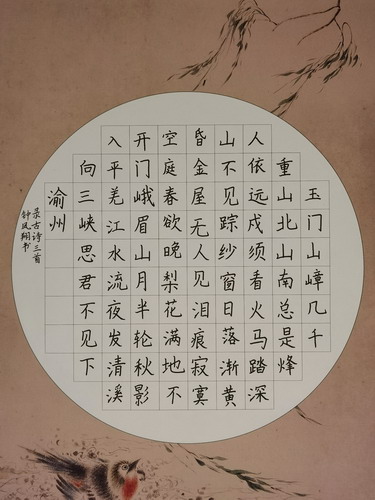 玉门山嶂几千
重山北山南总是烽
人依远戍须看火马踏深
山不见踪纱窗日落渐黄
昏金屋无人见泪痕寂寞
空庭春欲晚梨花满地不
开门峨眉山月半轮秋影
入平羌江水流夜发清溪
向三峡思君不见下
渝州
录古诗三首
钟凤翔书